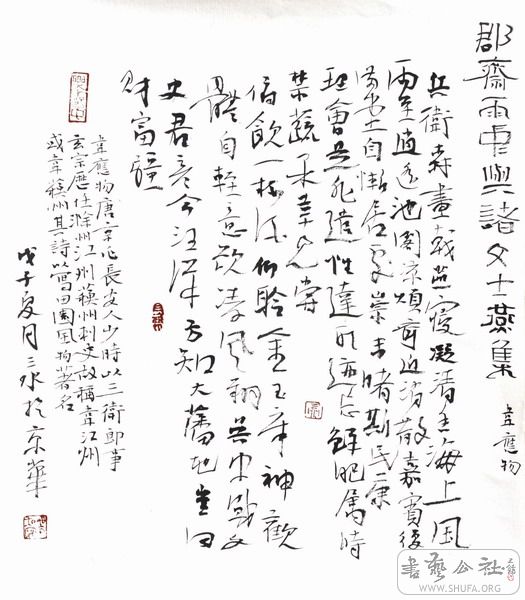 郡齋雨中與諸文士燕集
韋應物
兵衛森畫戟燕寢凝清香海上風
雨至逍遥池閣凉煩疴近消散嘉賓復
满堂自慚居處崇未睹斯民康
理會是非遣性達形迹忘鮮肥属時
禁蔬果幸見嘗
俯飲一杯酒仰聆金玉章神歡
體自輕意欲凌風翔吴中盛文
史君彦今汪洋方知大藩地豈曰
財富疆
韋應物唐京兆長安人少時以三衛郎事
玄宗歷任滁州江州蘇州刺史故稱韋江州
或韋蘇州其詩以寫田園風物著名
戊子夏月三水於京華
書藝公社
WWW.SHUFA.ORG